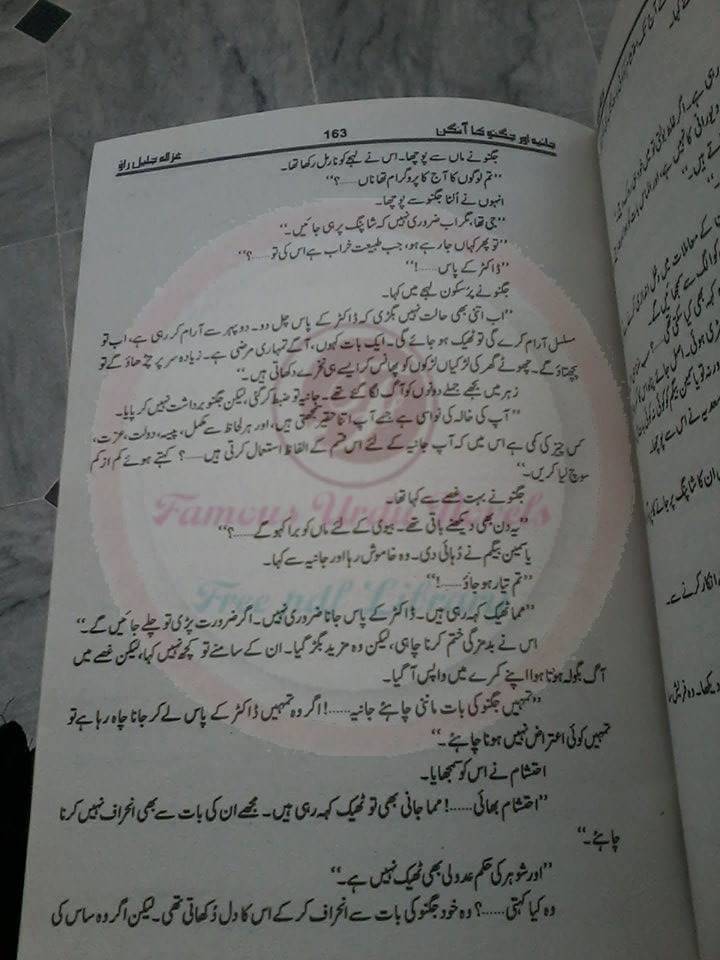 جانیہ اور جگنو کا آنگن 163 غزالہ جلیل راؤ
جگنو نے ماں سے پوچھا۔ اس نے لہجے کو نارمل رکھا تھا۔
’’تم لوگوں کا آج کا پروگرام تھا ناں......؟‘‘
انہوں نے اُلٹا جگنو سے پوچھا۔
’’جی تھا، مگر اب ضروری نہیں کہ شاپنگ پر ہی جائیں۔‘‘
’’تو پھر کہاں جا رہے ہو، جب طبیعت خراب ہے اس کی تو......؟‘‘
’’ڈاکٹر کے پاس......!‘‘
جگنو نے پُرسکون لہجے میں کہا۔
’’اب اتنی بھی حالت نہیں بگڑی کہ ڈاکٹر کے پاس چل دو۔ دوپہر سے آرام کر رہی ہے، اب تو
مسلسل آرام کرے گی تو ٹھیک ہو جائے گی۔ ایک بات کہوں، آگے تمہاری مرضی ہے۔ زیادہ سر پر چڑھاؤ گے تو
پچھتاؤ گے۔ چھوٹے گھر کی لڑکیاں لڑکوں کو پھانس کر ایسے ہی نخرے دکھاتی ہیں۔‘‘
زہر میں بجھے جملے دونوں کو آگ لگا گئے تھے۔ جانیہ تو ضبط کر گئی، لیکن جگنو برداشت نہیں کر پایا۔
’’آپ کی خالہ کی نواسی ہے جسے آپ اتنا حقیر سمجھتی ہیں، اور ہر لحاظ سے مکمل، پیسہ، دولت، عزت،
کس چیز کی کمی ہے اس میں کہ آپ جانیہ کے لئے اس قسم کے الفاظ استعمال کرتی ہیں......؟ کہتے ہوئے کم از کم
سوچ لیا کریں۔‘‘
جگنو نے بہت غصے سے کہا تھا۔
’’یہ دن بھی دیکھنے باقی تھے۔ بیوی کے لئے ماں کو برا کہو گے......؟‘‘
یاسمین بیگم نے دُہائی دی۔ وہ خاموش رہا اور جانیہ سے کہا۔
’’تم تیار ہو جاؤ......!‘‘
’’مما ٹھیک کہہ رہی ہیں۔ ڈاکٹر کے پاس جانا ضروری نہیں۔ اگر ضرورت پڑی تو چلے جائیں گے۔‘‘
اس نے بدمزگی ختم کرنا چاہی، لیکن وہ مزید بگڑ گیا۔ ان کے سامنے تو کچھ نہیں کہا، لیکن غصے میں
آگ بگولہ ہوتا ہوا اپنے کمرے میں واپس آ گیا۔
’’تمہیں جگنو کی بات ماننی چاہئے جانیہ......! اگر وہ تمہیں ڈاکٹر کے پاس لے کر جانا چاہ رہا ہے تو
تمہیں کوئی اعتراض نہیں ہونا چاہئے۔‘‘
احتشام نے اس کو سمجھایا۔
’’احتشام بھائی......! مما جانی بھی تو ٹھیک کہہ رہی ہیں۔ مجھے ان کی بات سے بھی انحراف نہیں کرنا
چاہئے۔‘‘
’’اور شوہر کی حکم عدولی بھی ٹھیک نہیں ہے۔‘‘
وہ کیا کہتی......؟ وہ خود جگنو کی بات سے انحراف کر کے اس کا دل دُکھاتی تھی۔ لیکن اگر وہ ساس کی
Famous Urdu Novels
Free pdf Library